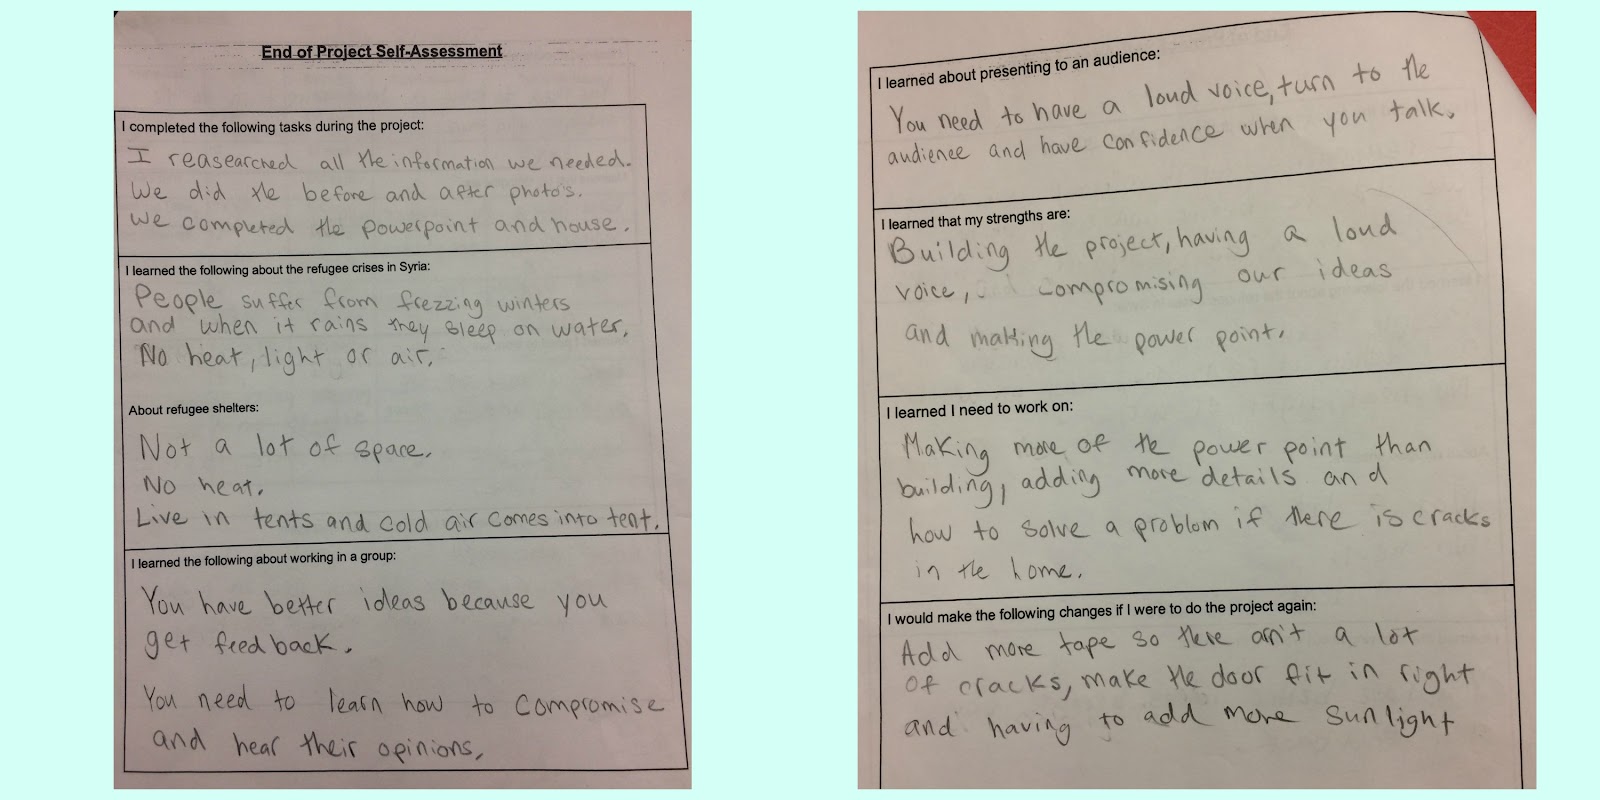 End of Project Self-Assessment
I completed the following tasks during the project:
I reasearched all the information we needed.
We did the before and after photo's.
We completed the powerpoint and house.
I learned the following about the refugee crises in Syria:
People suffer from frezzing winters
and when it rains they sleep on water.
No heat, light or air.
About refugee shelters:
Not a lot of space.
No heat.
Live in tents and cold air comes into tent.
I learned the following about working in a group:
You have better ideas because you
get feedback.
You need to learn how to compromise
and hear their opinions.
I learned about presenting to an audience:
You need to have a loud voice, turn to the
audience and have confidence when you talk.
I learned that my strengths are:
Building the project, having a loud
voice, compromising our ideas
and making the power point.
I learned I need to work on:
Making more of the power point than
building, adding more details and
how to solve a problom if there is cracks
in the home.
I would make the following changes if I were to do the project again:
Add more tape so there arn't a lot
of cracks, make the door fit in right
and having to add more sunlight